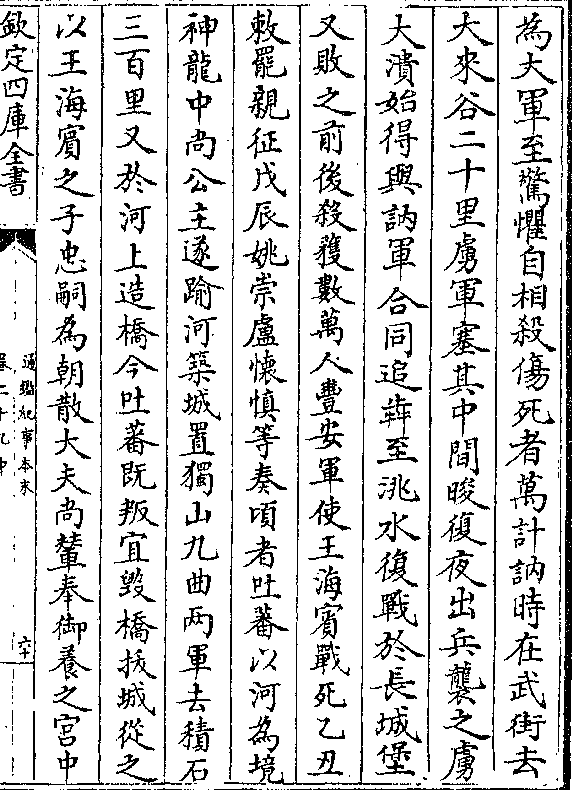 為大軍至驚懼自相殺傷死者萬計訥時在武街去
大來谷二十里虜軍塞其中間晙復夜出兵襲之虜
大潰始得與訥軍合同追奔至洮水復戰於長城堡
又敗之前後殺獲數萬人豐安軍使王海賓戰死乙丑
敕罷親征戊辰姚崇盧懷慎等奏頃者吐蕃以河為境
神龍中尚公主遂踰河築城置獨山九曲兩軍去積石
三百里又於河上造橋今吐蕃既叛宜毀橋拔城從之
以王海賓之子忠嗣為朝散大夫尚輦奉御養之宮中
欽定四庫全書
通鑑紀事本末
卷二十九中
六十